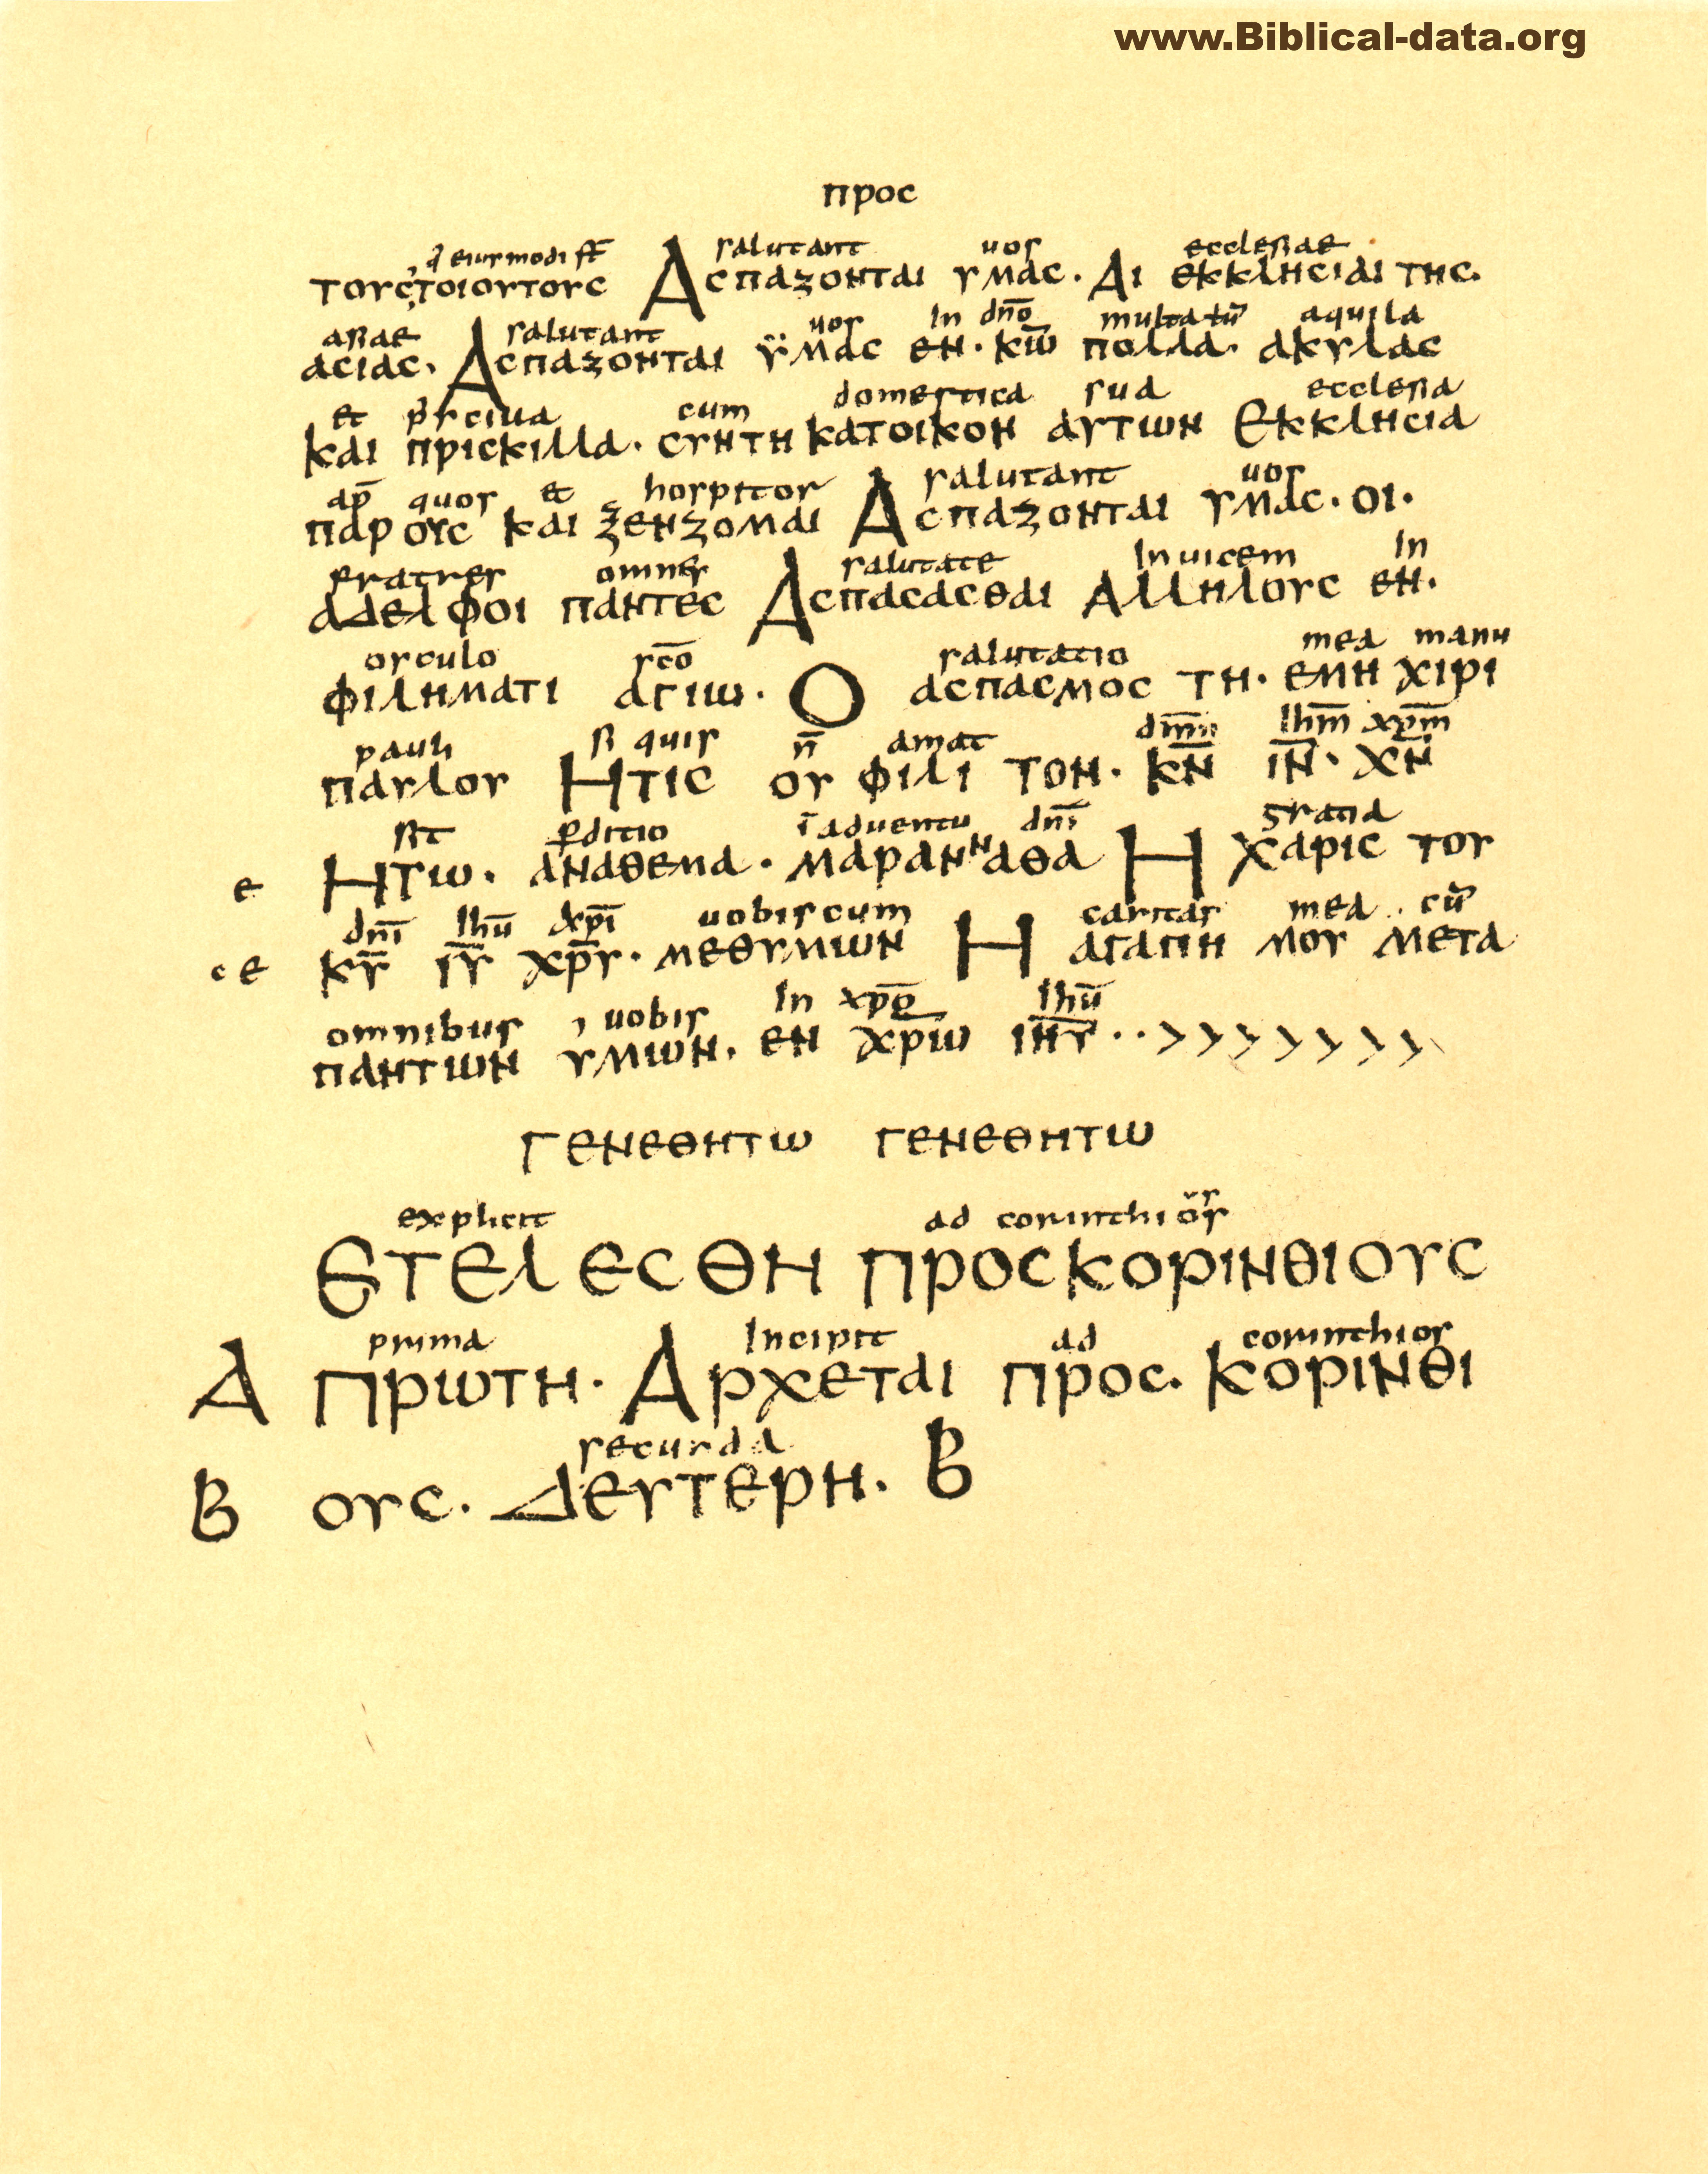 www.Biblical-data.org
προς
salutant uos ecclesiae
τουςτοιουτους Ασπαζονται υμας· Αι εκκλησιαι της·
asiae salutant uos In dn̄o aquila
ασιας· Ασπαζονται ϋμας εν· κ̄ω̄ πολλα· ακυλας
et cum domestica sua ecclesia
και πρισκιλλα· συντη κατοικον αυτων Εκκλησια
ap̄ quos et hospitor salutant uos
παρ ους και ξενζομαι Ασπαζονται υμας· οι·
fratres omnes salutate Inuicem In
αδελφοι παντες Ασπασασθαι Αλληλους εν·
osculo sc̄o salutatio mea manu
φιληματι αγιω· Ο ασπασμος τη· εμη χιρι
pauli si quis n̄ amat ihm̄ xpm̄
παυλου Ητις ου φιλι τον· κ̄ν̄ ῑν̄· χ̄ν̄
sit ꝑditio ī aduentu dnī gratia
ε Ητω· αναθεμα· μαραννаθα Η χαρις του
dnī ihū xpī uobiscum caritas mea cū
σ ε κ̄ῡ ῑῡ χ̄ρ̄ῡ· μεθυμων Η αγαπη μου μετα
omnibus uobis In xpō ihū
παντων υμων· εν χ̄ρ̄ω̄ ῑη̄ῡ ··>>>>>>>
γενεθητω γενεθητω
explicit ad corinthios
Ετελεσθη προσκορινθιους
prima Incipit ad corinthios
Α Πρωτη· Αρχεται προς· κορινθι
secunda
Β ους· Δευτερη· Β